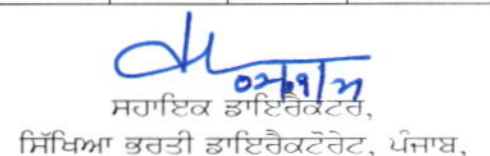 02/09/21
ਸਹਾਇਕ ਡਾਇਰੈਕਟਰ,
ਸਿੱਖਿਆ ਭਰਤੀ ਡਾਇਰੈਕਟੋਰੇਟ, ਪੰਜਾਬ,